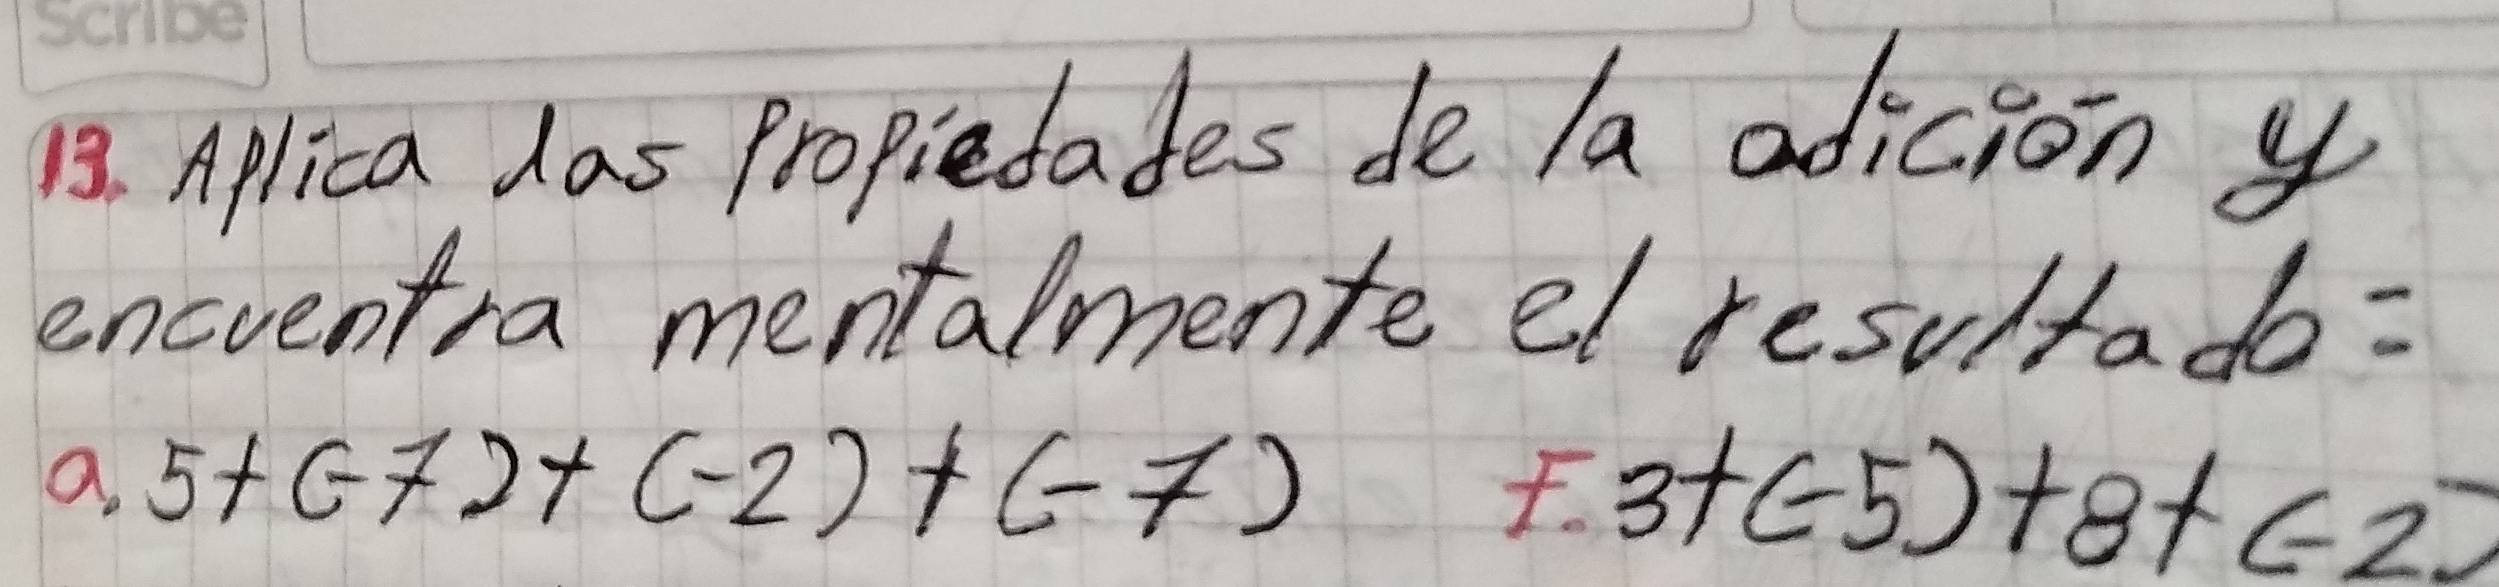 Scribe
13. Aplica las Propiedades de la adición y
encuentra mentalmente el resultado=
a. 5+(-7)+(-2)+(-7) F. 3+(-5)+8+(-2)